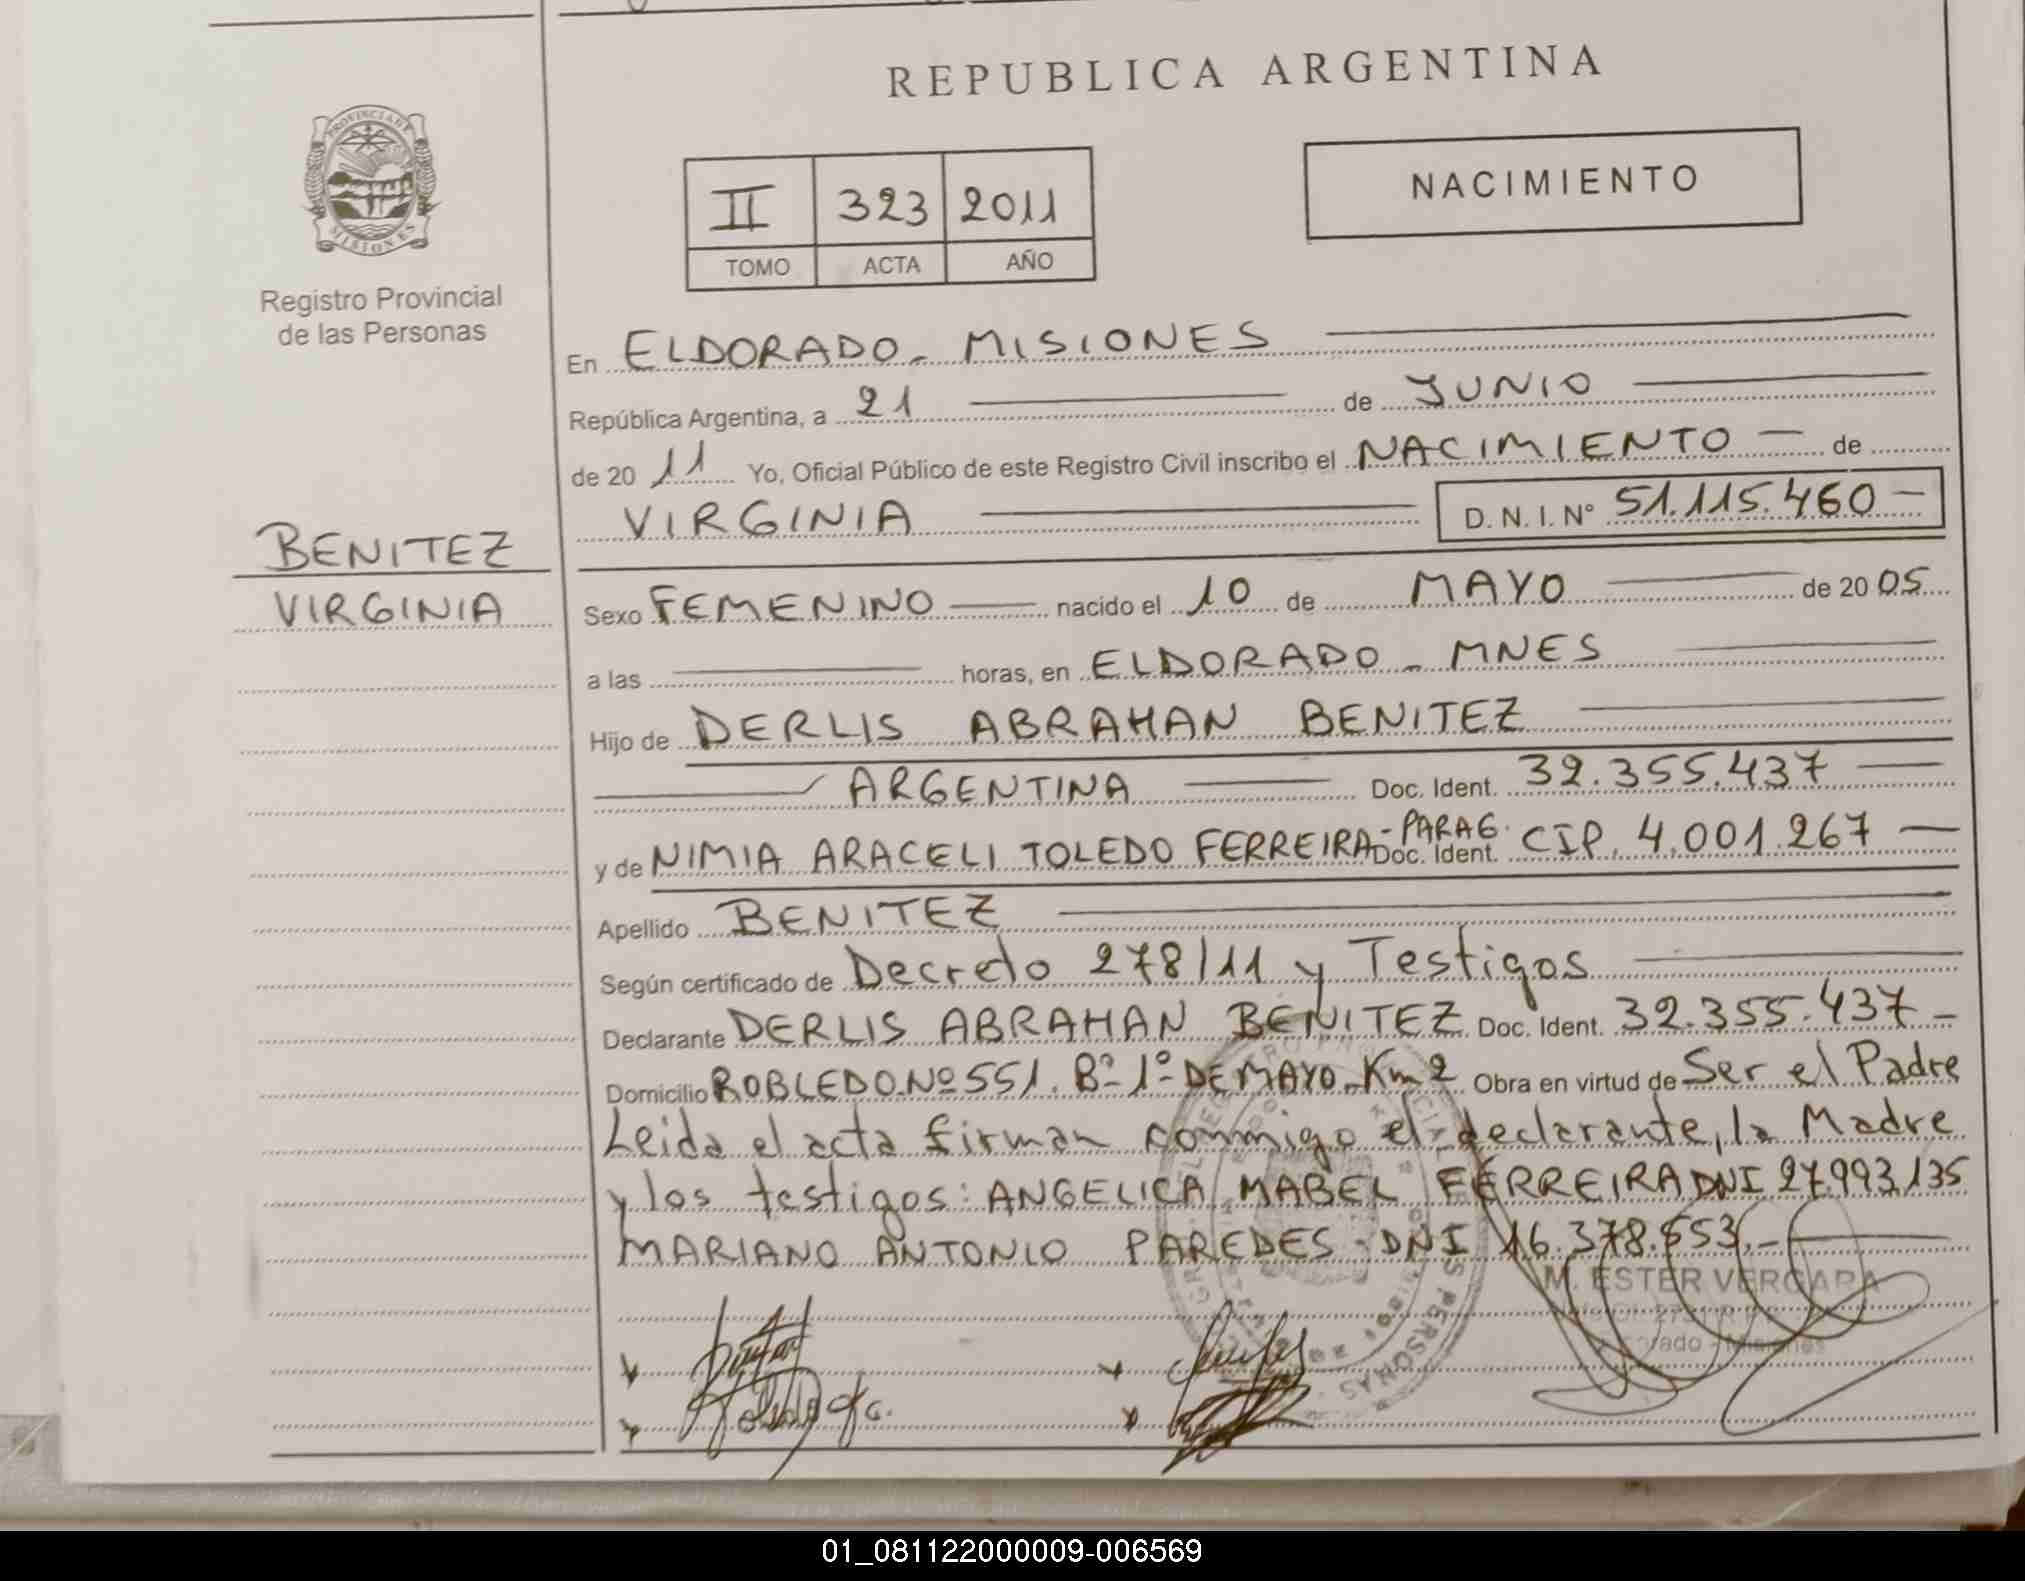 REPUBLICA ARGENTINA
PROVINCIA DE
MISIONES
Registro Provincial
de las Personas
II 323 2011
TOMO ACTA AÑO
NACIMIENTO
En ELDORADO - MISIONES
República Argentina, a 21 de JUNIO
de 20 11 Yo, Oficial Público de este Registro Civil inscribo el NACIMIENTO - de
VIRGINIA D.N.I. Nº 51.115.460 -
BENITEZ
VIRGINIA
Sexo FEMENINO nacido el 10 de MAYO de 20 05
a las horas, en ELDORADO - MNES
Hijo de DERLIS ABRAHAN BENITEZ
ARGENTINA Doc. Ident. 32.355.437
y de NIMIA ARACELI TOLEDO FERREIRA - PARAG. Doc. Ident. CIP. 4.001.267
Apellido BENITEZ
Según certificado de Decreto 278/11 y Testigos
Declarante DERLIS ABRAHAN BENITEZ Doc. Ident. 32.355.437 -
Domicilio ROBLEDO Nº 551. Bº 1º DE MAYO - Km 2 Obra en virtud de Ser el Padre
Leida el acta firman conmigo el declarante, la Madre
y los testigos: ANGELICA MABEL FERREIRA DNI 27.993.135
MARIANO ANTONIO PAREDES DNI 16.378.553.-
M. ESTER VERGARA
01_081122000009-006569